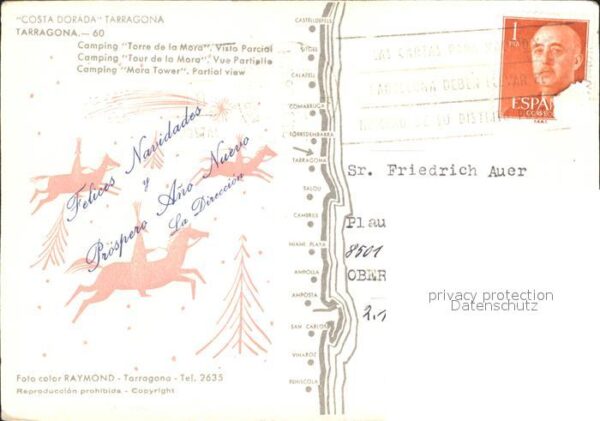 "COSTA DORADA" TARRAGONA
TARRAGONA.— 60
Camping "Torre de la Mora". Vista Parcial
Camping "Tour de la Mora". Vue Partielle
Camping "Mora Tower". Partial view
Felices Navidades
y
Próspero Año Nuevo
La Dirección
Foto color RAYMOND - Tarragona - Tel. 2635
Reproducción prohibida - Copyright
CASTELLDEFELS
SITGES
CALAFELL
COMARRUGA
TORREDEMBARRA
TARRAGONA
SALOU
CAMBRILS
MIAMI PLAYA
AMPOLLA
AMPOSTA
SAN CARLOS
VINAROZ
PEÑISCOLA
LAS CARTAS PARA
BARCELONA DEBEN LLEVAR
DE SU DISTRITO
1
PTA
ESPAÑ
CORREOS
Sr. Friedrich Auer
Plau
8501
OBER
privacy protection
Datenschutz